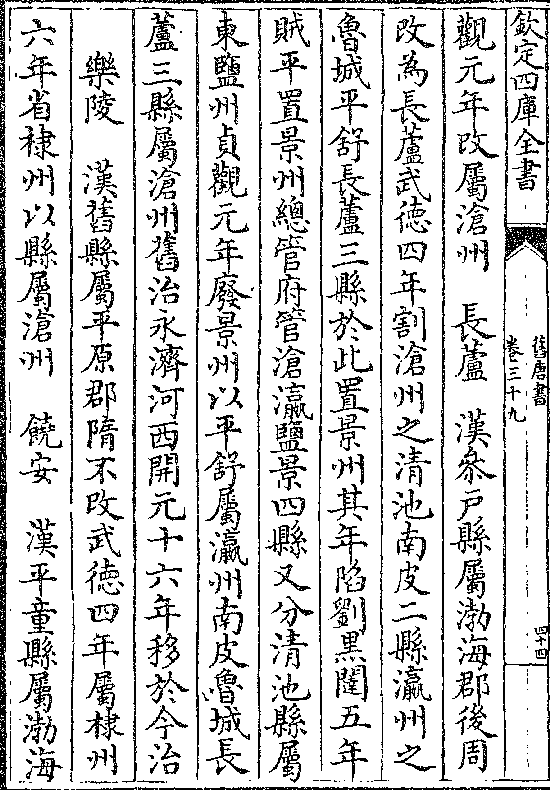 欽定四庫全書
舊唐書
卷三十九
四十四
觀元年改屬滄州　長蘆　漢叅戶縣屬渤海郡後周
改為長蘆武德四年割滄州之清池南皮二縣瀛州之
魯城平舒長蘆三縣於此置景州其年陷劉黑闥五年
賊平置景州總管府管滄瀛鹽景四縣又分清池縣屬
東鹽州貞觀元年廢景州以平舒屬瀛州南皮魯城長
蘆三縣屬滄州舊治永濟河西開元十六年移於今治
樂陵　漢舊縣屬平原郡隋不改武德四年屬棣州
六年省棣州以縣屬滄州　饒安　漢平童縣屬渤海